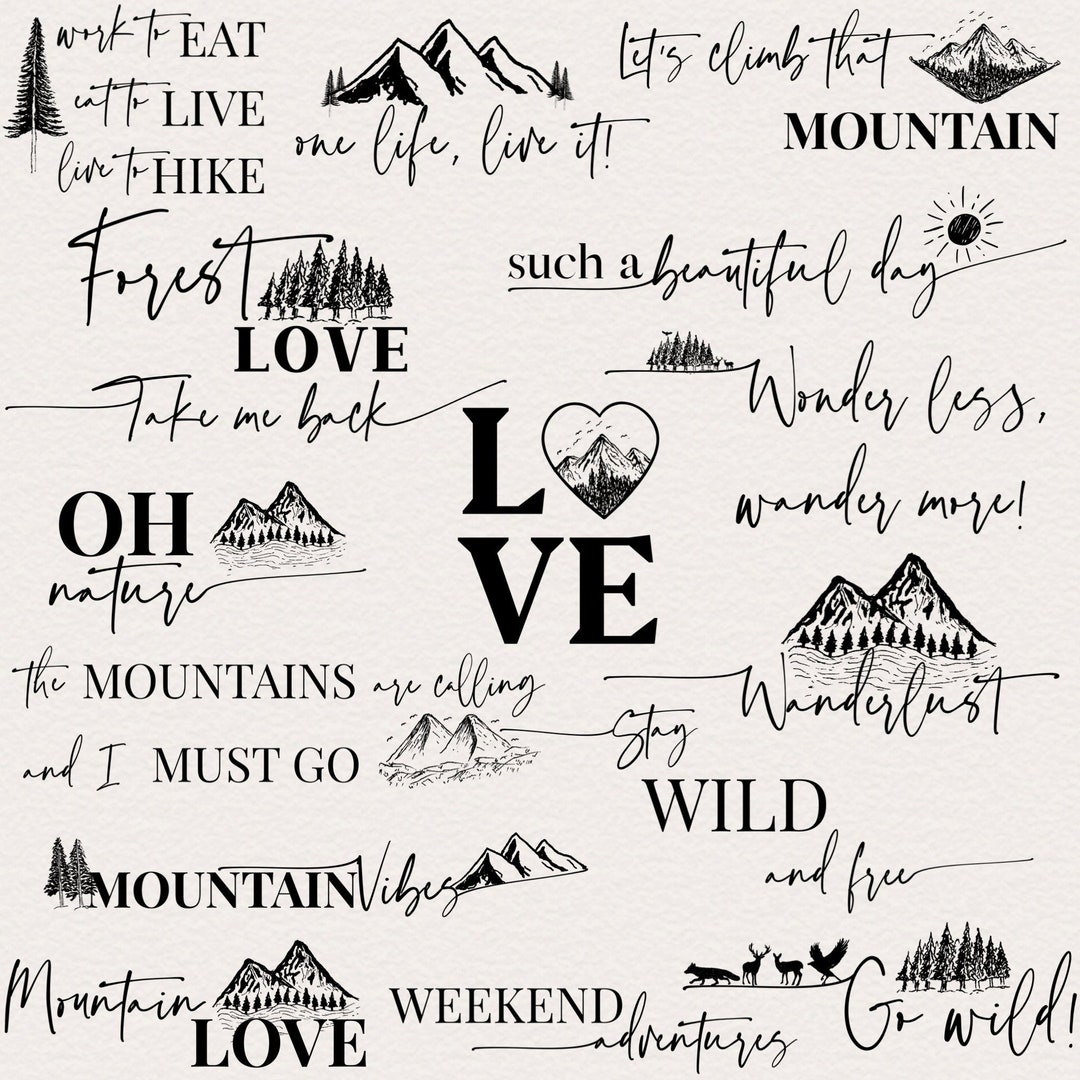 work to EAT
eat to LIVE
live to HIKE
one life, live it!
Let's climb that
MOUNTAIN
Forest
LOVE
such a beautiful day
Take me back
Wonder less,
wander more!
L
VE
OH
nature
Wanderlust
the MOUNTAINS are calling
and I MUST GO
Stay
WILD
and free
MOUNTAIN Vibes
Mountain
LOVE
WEEKEND
adventures
Go wild!